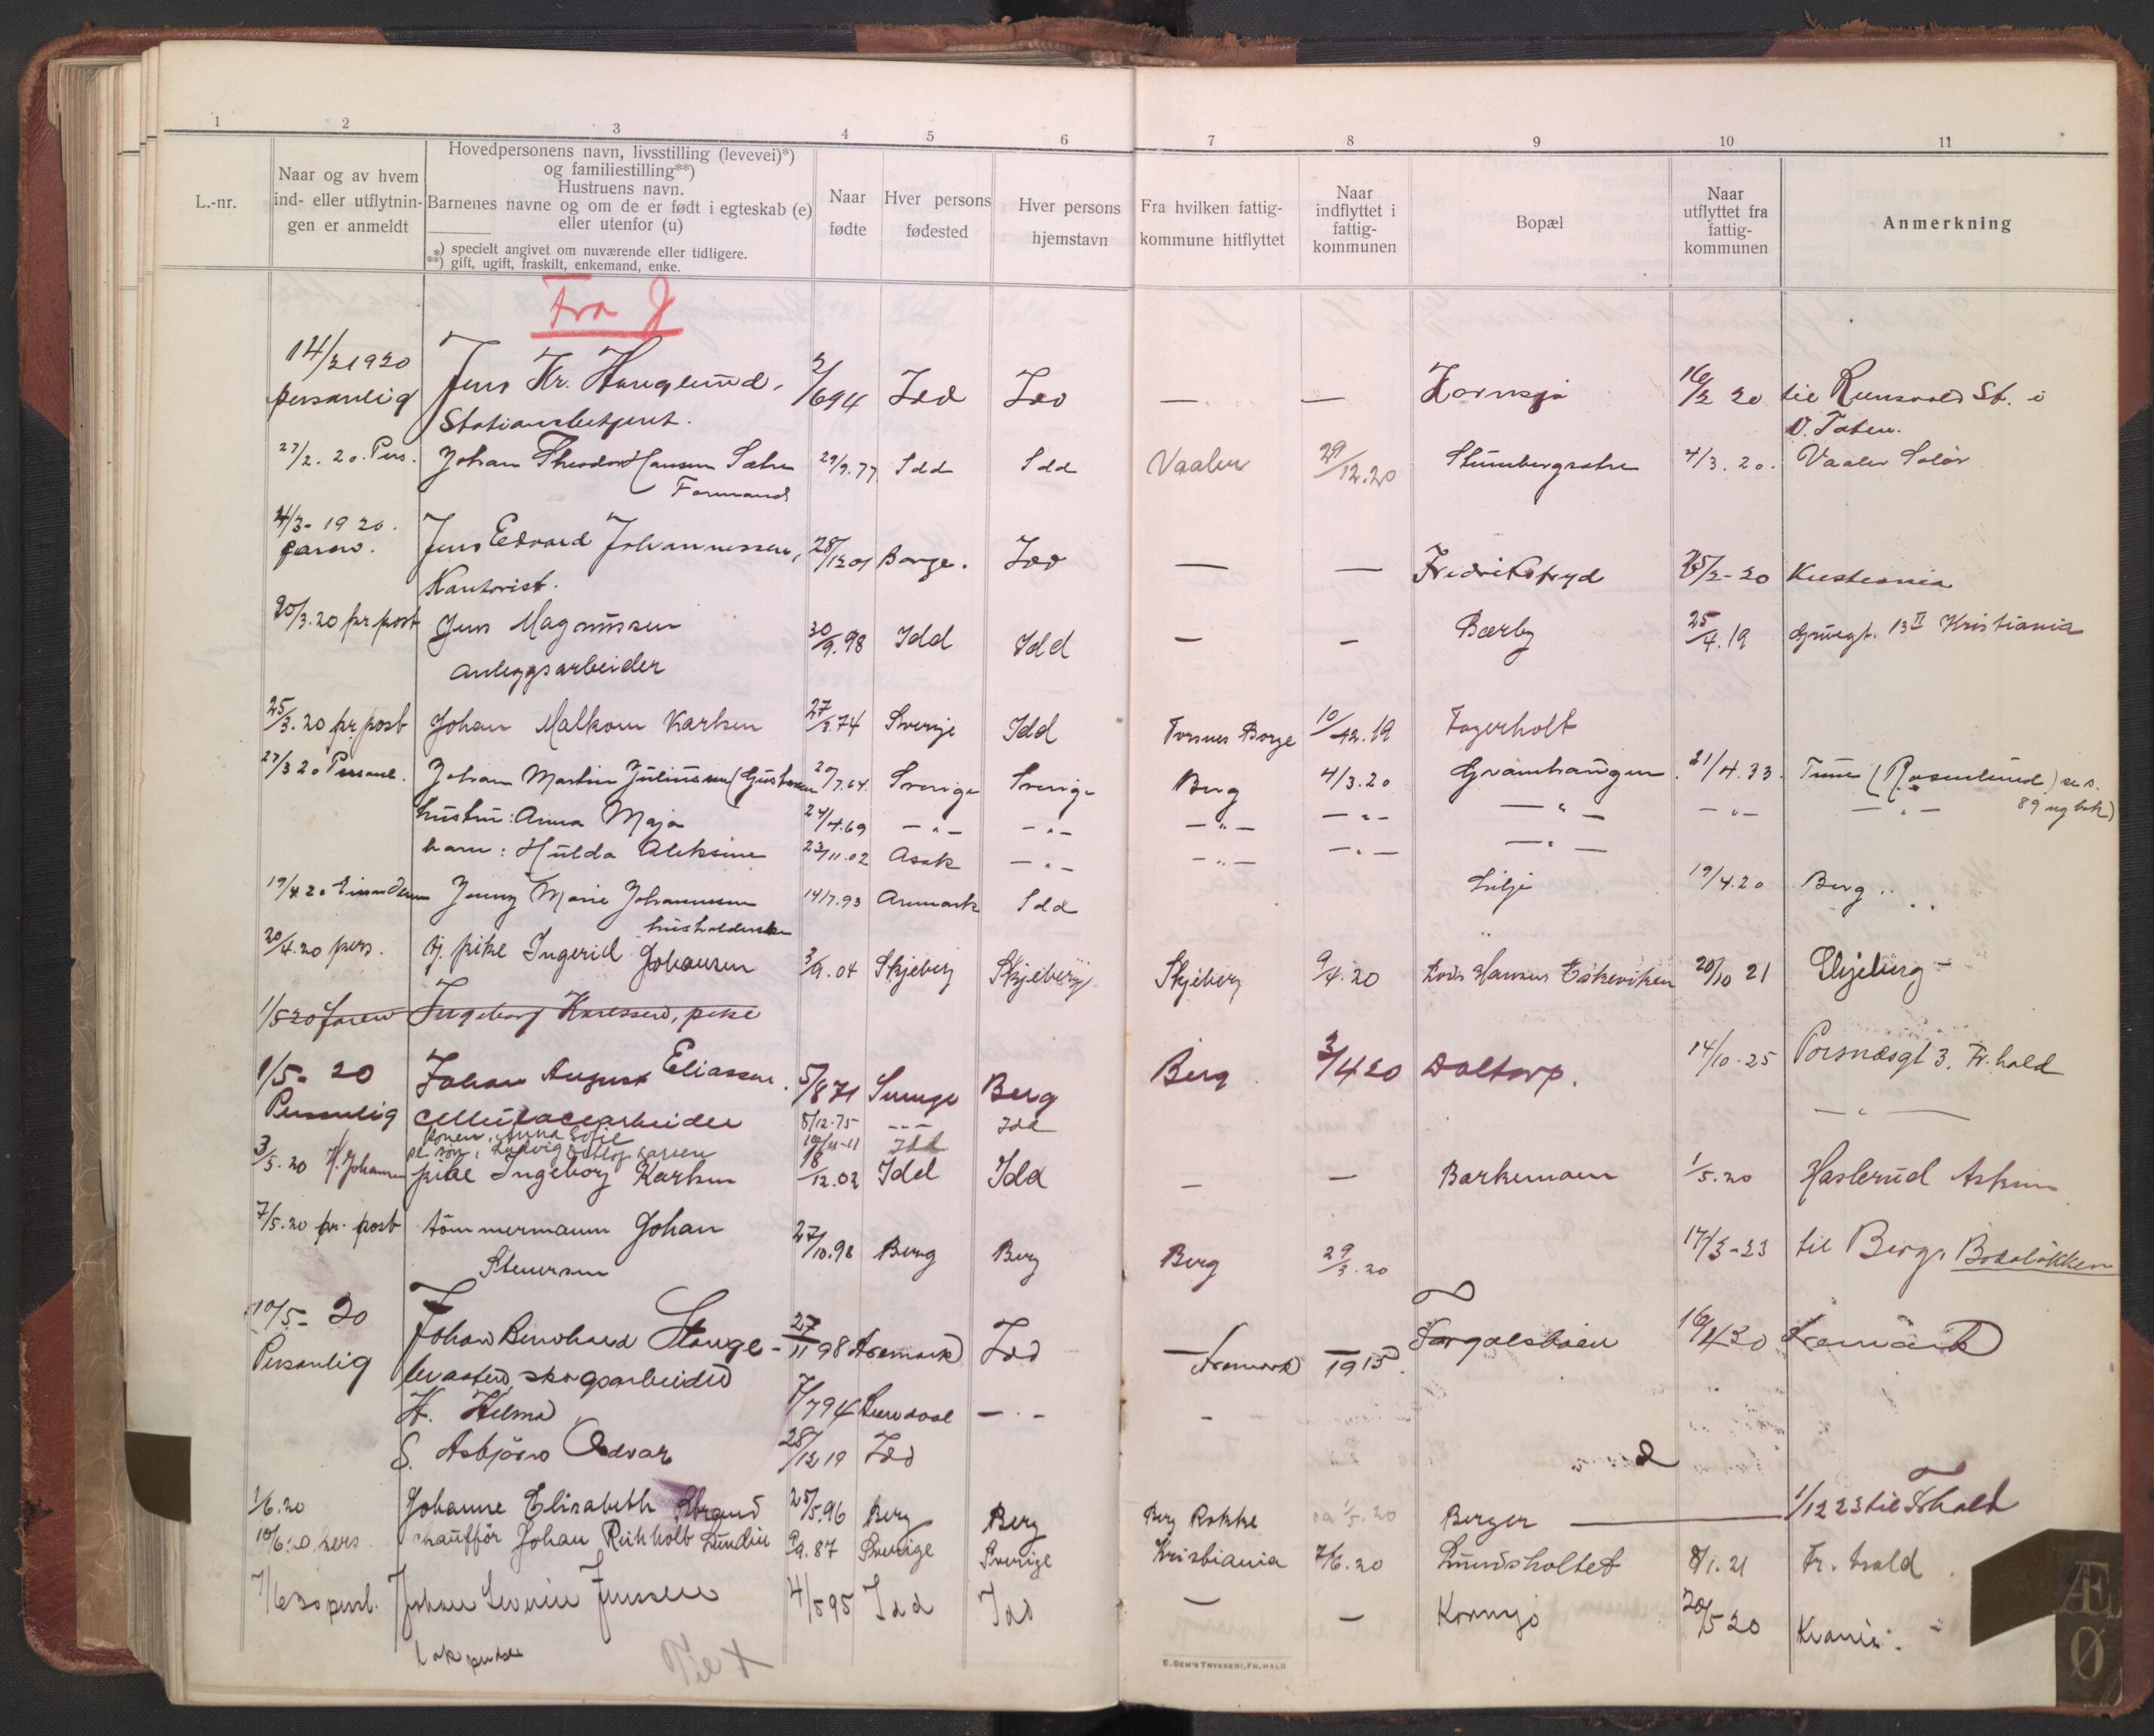 1 2 3 4 5 6 7 8 9 10 11
L.-nr.
Naar og av hvem
ind- eller utflytnin-
gen er anmeldt
Hovedpersonens navn, livsstilling (levevei)*)
og familiestilling**)
Hustruens navn.
Barnenes navne og om de er født i egteskab (e)
eller utenfor (u)
*) specielt angivet om nuværende eller tidligere.
**) gift, ugift, fraskilt, enkemand, enke.
Naar
fødte
Hver persons
fødested
Hver persons
hjemstavn
Fra hvilken fattig-
kommune hitflyttet
Naar
indflyttet i
fattig-
kommunen
Bopæl
Naar
utflyttet fra
fattig-
kommunen
Anmerkning
Fra J
14/2 1920
personlig Jens Kr. Hauglund, 2/6 94 Idd Idd — — Kornsjø 16/2 20 til Reinsvold St. i
Stationsbetjent. V. Toten.
27/2. 20. Pers. Johan Theodor Hansen Sætre 29/9.77 Idd Idd Vaaler 29/12.20 4/3. 20. Vaaler Solør
Formand
4/3- 1920.
faren. Jens Edvard Johannessen, 28/12 01 Borge. Idd — — Fredriksfryd 25/2-20 Kristiania
Kontorist.
20/3.20 pr post Jens Magnussen 30/9.98 Idd Idd — — Bærby 25/4.19 Grüvegt. 13 II Kristiania
Anleggsarbeider
25/3.20 pr. post Johan Malkom Karlsen 27/8.74 Sverige Idd Torsnes Borge 10/12.19 Fagerholt
27/3 20 Personl. Johan Martin Juliussen (Gustavsen 20/7.64. Sverige Sverige Berg 4/3.20 Granhaugen 21/4.33. Tune (Rosenlund) se s.
hustru: Anna Maja 24/4.69 — " — — " — — " — — " — — " — — " — — " — 89 ny bok)
barn: Hulda Aleksine 23/11.02 Asak — " — — " — — " — — " —
19/4 20 Jenny Marie Johannessen 14/7.93 Aremark Idd Lilje 19/4.20 Berg
husholderske
20/4.20 pers. tj. pike Ingerid Johansen 3/9.04 Skjeberg Skjeberg Skjeberg 9/4.20 Lovis Hansen 20/10 21 Skjeberg
1/5 20 faren Ingeborg Karlssen, pike
1/5- 20 Johan August Eliassen. 5/8 71 Sverige Berg Berg 3/4 20 Daltorp. 14/10-25 Torsnæsgt 3. Fr.hald
Personlig Cellulosearbeider 8/12-75 — " — Idd — " —
konen, Anna Sofie
pl. søn, Ludvig Karlsen 10/11-11 Idd
3/5.20 H. Johansen pike Ingeborg Karlsen 18/12.02 Idd Idd — — Barkemoen 1/5.20 Haslerud Askim
7/5.20 pr. post tømmermann Johan 27/10.98 Berg Berg Berg 29/3.20 17/3-23 til Berg.
Steversen
10/5- 20 Johan Bernhard Stange- 27/11 98 Aremark Idd — Aremark 1915. Torgalsbøen 16/4 20 Aremark
Personlig skogsarbeider
H. Hilma 7/7 94 — " — -
S. Asbjørn Odvar 28/12 19 Idd
1/6.20 Johanne Elisabeth Strand 25/5.96 Berg Berg Berg Rokke ca 1/5.20 Berger — 1/12 23 til Fhald
10/6.20 pers. chauffør Johan Richholt Lundin 9/9.87 Sverige Sverige Kristiania 7/6.20 Lundsholtet 8/1.21 Fr. hald
7/6 20 persl. Johan Severin Jenssen 4/5 95 Idd Idd — — Kornsjø 20/5 20 Kr.ania.
Lokpusser
Til +
E. SEM'S TRYKKERI, FR.HALD
Æ
Ø